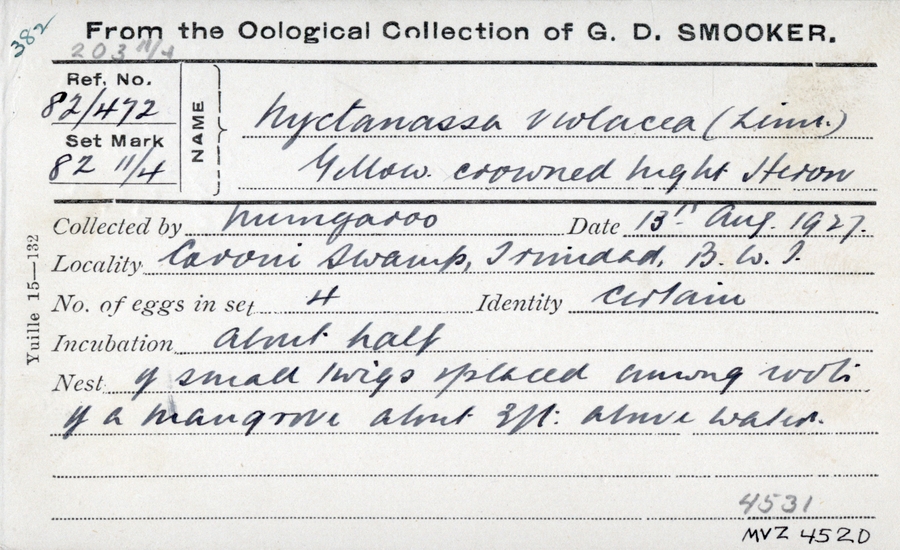 382
From the Oological Collection of G. D. SMOOKER.
203 11/4
Ref. No.
82/472
Set Mark
82 11/4
NAME
Nyctanassa violacea (Linn.)
Yellow crowned night Heron
Collected by Numgaroo Date 13th Aug. 1927.
Locality Caroni Swamp, Trinidad, B. W. I.
No. of eggs in set 4 Identity certain
Incubation About half
Nest of small twigs placed among roots
of a mangrove about 3ft. above water.
Yuille 15—132
4531
MVZ 4520